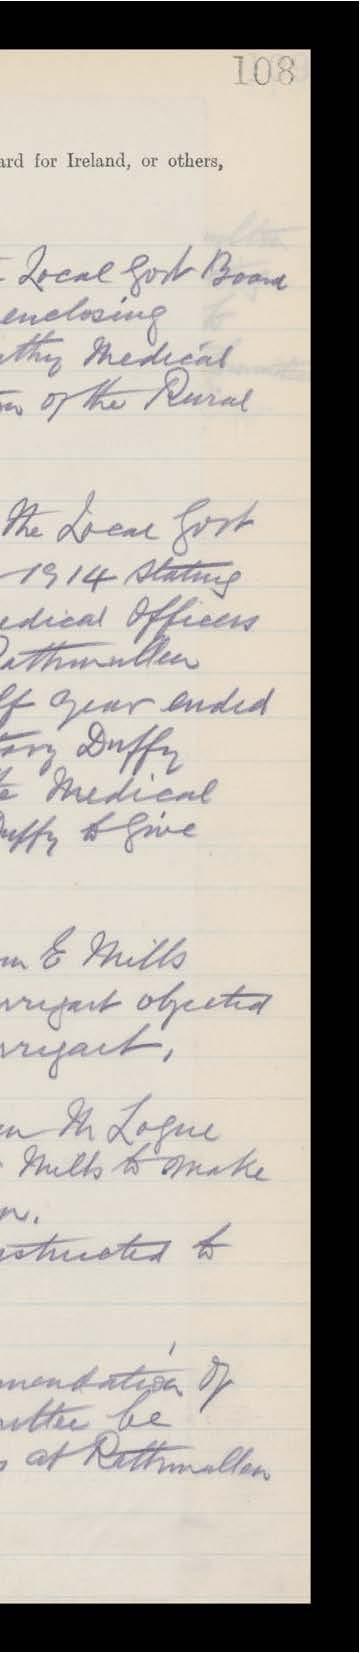 108
ard for Ireland, or others,
Local Govt Board
enclosing
thy Medical
of the Rural
The Local Govt
1914 stating
edical Officers
athmullen
lf year ended
tary Duffy
te Medical
uffy to give
m E Mills
rrigart objected
rrigart,
en Mr Logue
Mills to make
n.
structed to
mendation of
mittee be
s at Rathmullen